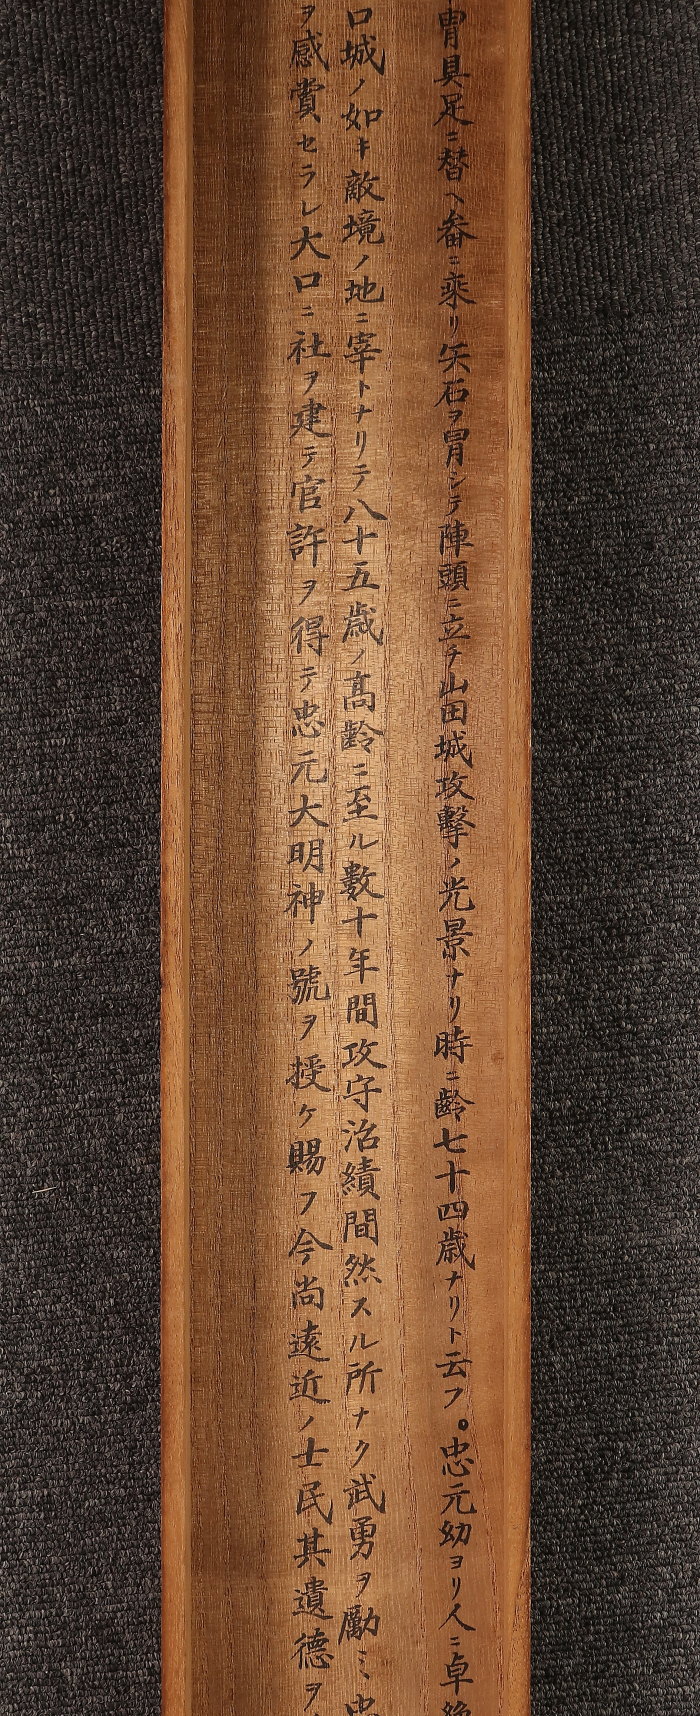 冑具足ニ替ヘ畚ニ乘リ矢石ヲ冒シテ陣頭ニ立チ山田城攻擊ノ光景ナリ時ニ齡七十四歲ナリト云フ。忠元幼ヨリ人ニ卓絶
口城ノ如キ敵境ノ地ニ宰トナリテ八十五歲ノ高齡ニ至ル數十年間攻守治績間然スル所ナク武勇ヲ勵ミ忠
ヲ感賞セラレ大口ニ社ヲ建テ官許ヲ得テ忠元大明神ノ號ヲ授ケ賜フ今尚遠近ノ士民其遺德ヲ